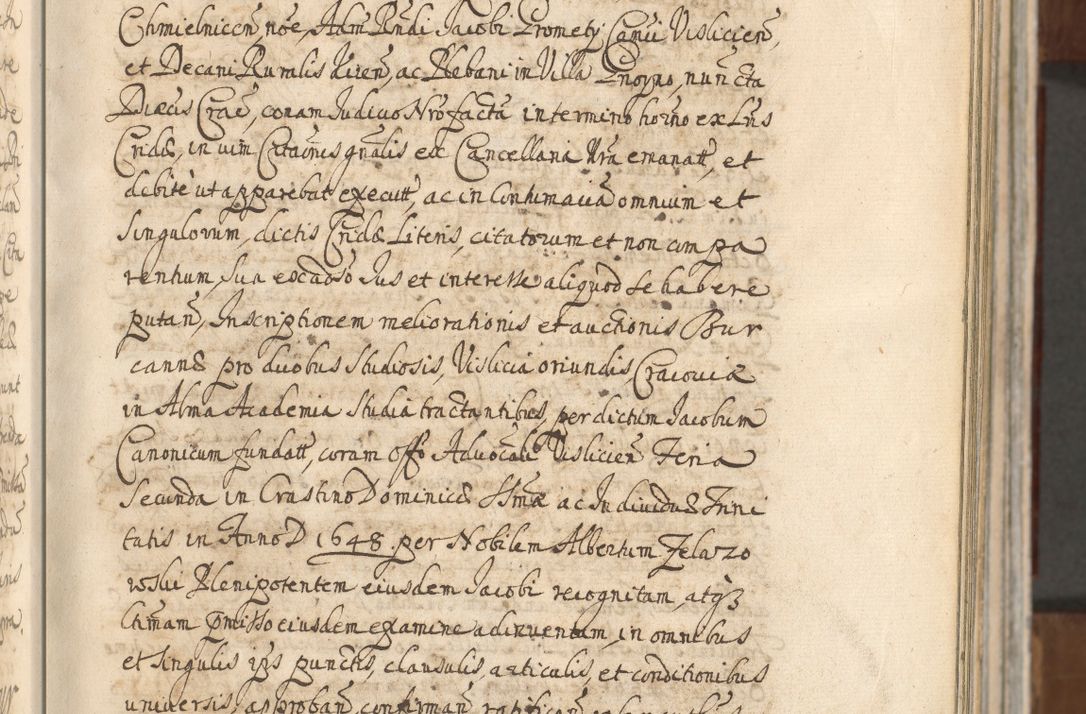 Chmielnicen̄ nōe, Adm Rn̄di Jacobi Promety Canū Visliciēn,
et Decani Ruralis Kiień, ac Plebani in Villa Gnoyno, nun̄cta
Diæcis Craē, coram Judicio Nr̄o factā in termino hor̄no ex Lr̄is
Cridæ, in vim Citaōnis gn̄alis ex Cancellaria Nr̄a emanatt̄, et
debitè ut apparebat executt̄, ac in Contumaciā omnium et
Singulorum, dictis Cridæ Literis, citatorum et non compa
rentium, sua ex causo Jus et interesse aliquod se habere
putan̄, Inscriptionem meliorationis et auctionis Bur
carum pro duobus Studiosis, Vislicia oriundis, Cracoviæ
in Alma Academia Studia tractantibus, per dictum Jacobum
Canonicum fundatt̄, coram Offō Advocāli Vislicien̄ Feria
Secunda in Crastino Dominicæ Ssmæ ac Individuæ Trini
tatis in Anno D 1648. per Nobilem Albertum Zelazo
wski Plenipotentem eiusdem Jacobi recognitam, atq3
Ltimam p̄misso eiusdem examine adinventam, in omnibus
et singulis ip̄is punctis, clausulis, articulis, et conditionibus
universis, approban̄, confirman̄